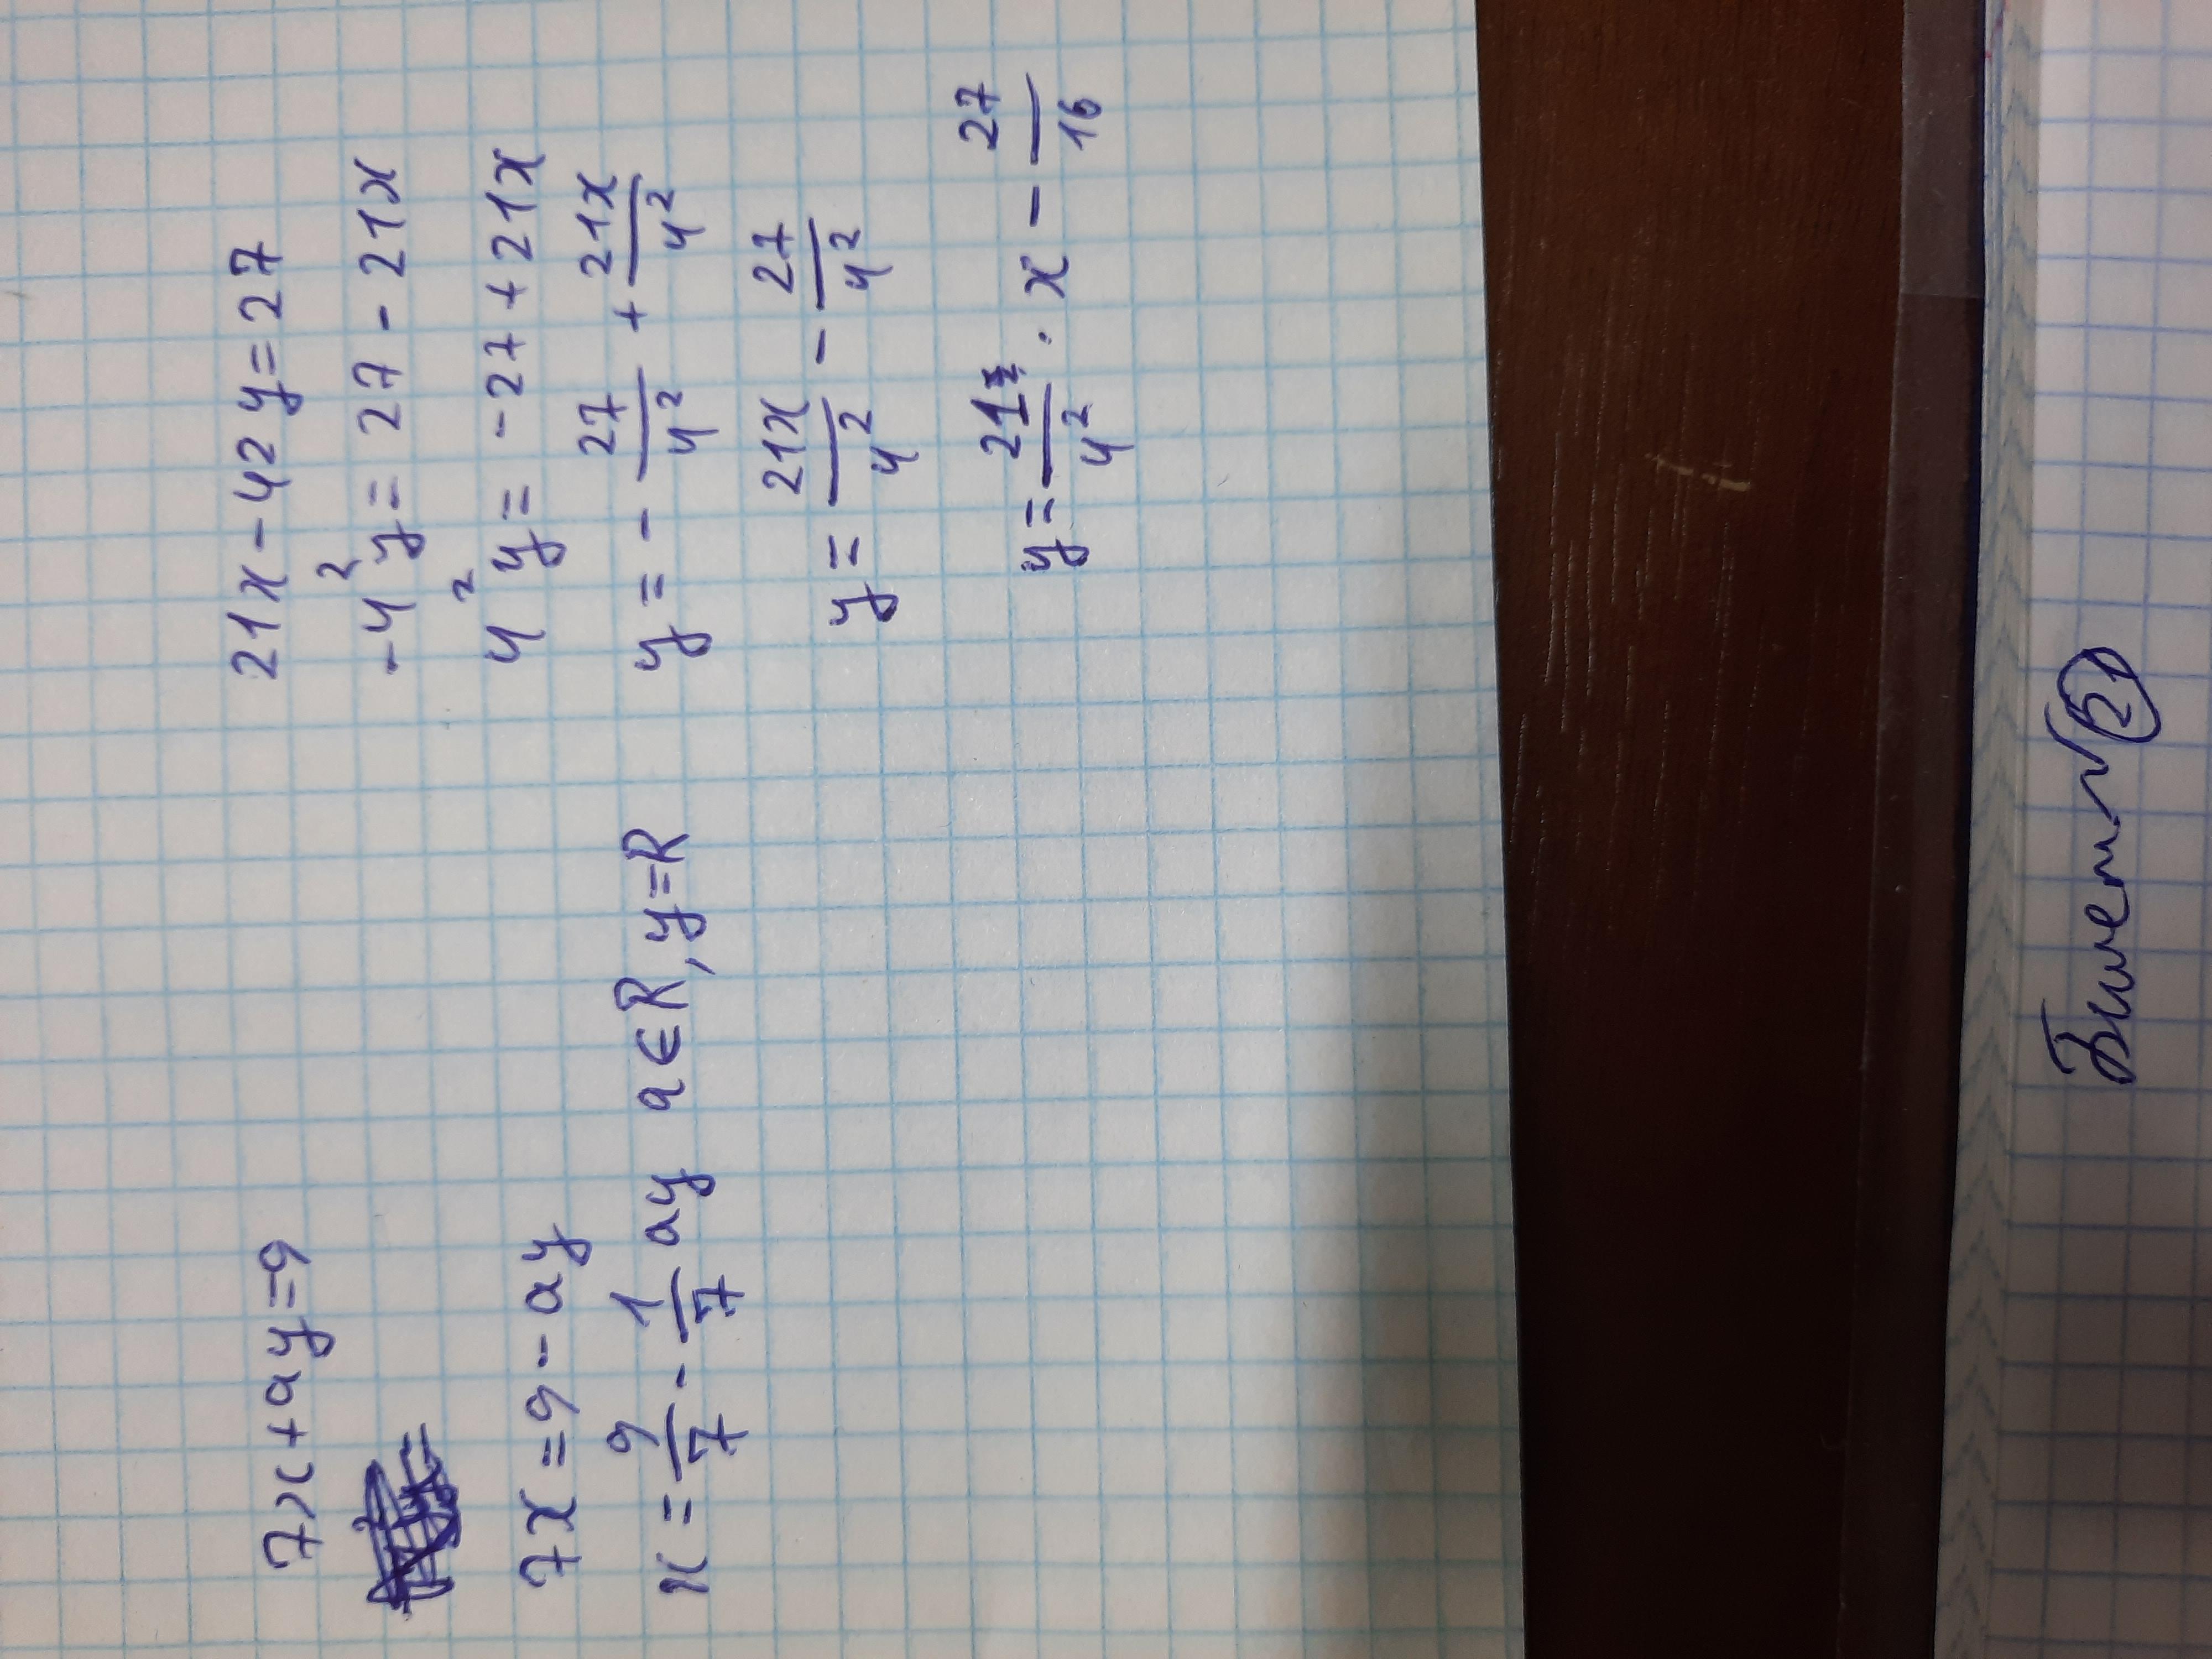 7x+ay=9
7x=9-ay
x=9/7-1/7ay a∈R, y=R
21x-42y=27
-4²y=27-21x
4²y=-27+21x
y=-27/4²+21x/4²
y=21x/4²-27/4²
y=21/4²·x-27/16
Билет √21